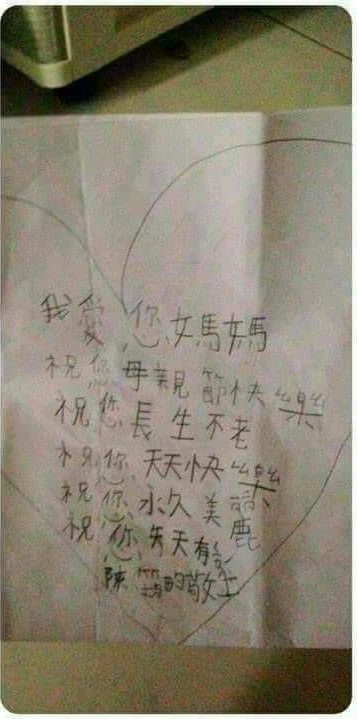 我愛您媽媽
祝您母親節快樂
祝您長生不老
祝您天天快樂
祝您永久美麗
祝您天天有
陳 的敬上